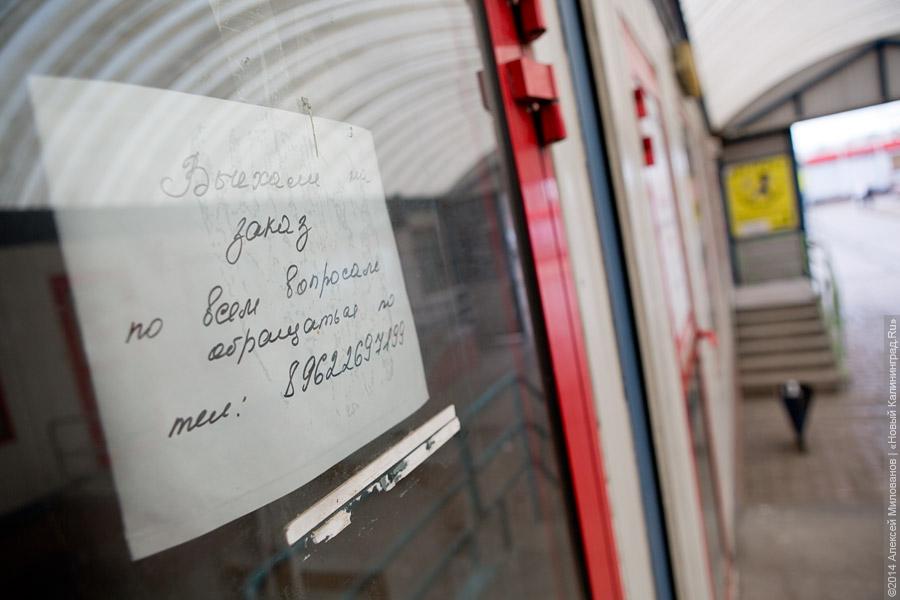 Выехали на
заказ
по всем вопросам
обращаться по
тел: 89622697199
©2014 Алексей Милованов | «Новый Калининград.Ru»